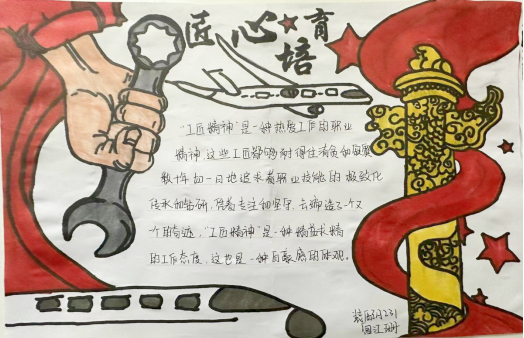 匠心培育
"工匠精神"是一种热爱工作的职业
精神。这些工匠能够耐得住清贫和寂寞
数十年如一日地追求着职业技能的极致化
传承和钻研,凭着专注和坚守,去缔造了一个又
个的奇迹,"工匠精神"是一种精益求精
的工作态度,这也是一种